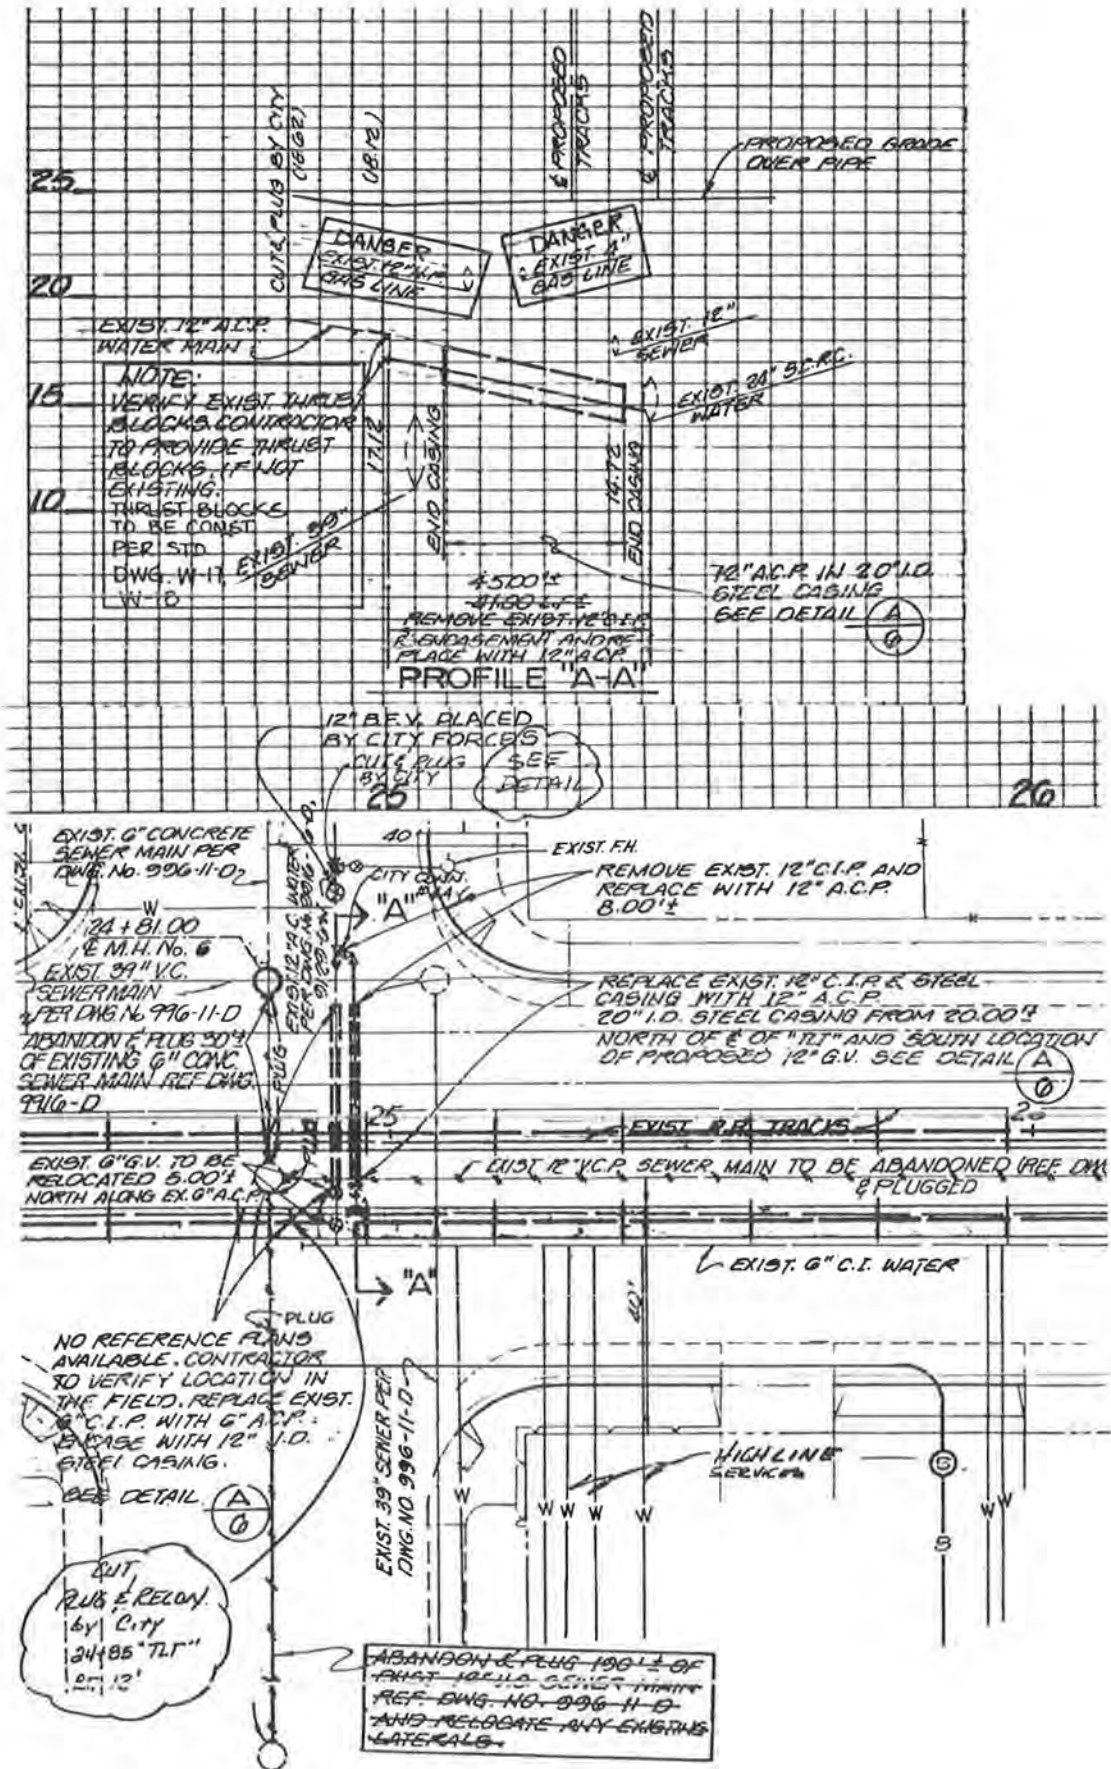 ℄ PROPOSED
TRACKS
℄ PROPOSED
TRACKS
CUT & PLUG BY CITY
(18.12)
PROPOSED GRADE
OVER PIPE
25
20
15
10
DANGER
GAS LINE
DANGER
EXIST. 4"
GAS LINE
EXIST. 12" A.C.P.
WATER MAIN
EXIST. 12"
SEWER
EXIST. 24" S.C.R.C.
WATER
NOTE:
VERIFY EXIST. THRUST
BLOCKS. CONTRACTOR
TO PROVIDE THRUST
BLOCKS, IF NOT
EXISTING.
THRUST BLOCKS
TO BE CONST.
PER STD.
DWG. W-17,
W-18
EXIST. 39"
SEWER
17.12
END CASING
14.72
END CASING
45.00'±
41.00 L.F.±
REMOVE EXIST. 12" C.I.P.
& ENCASEMENT AND RE-
PLACE WITH 12" A.C.P.
12" A.C.P. IN 20" I.D.
STEEL CASING
SEE DETAIL
A
6
PROFILE "A-A"
12" B.F.V. PLACED
BY CITY FORCES
CUT & PLUG
BY CITY
SEE
DETAIL
25
26
EXIST. 6" CONCRETE
SEWER MAIN PER
DWG. No. 996-11-D
40
EXIST. F.H.
CITY CONN.
REMOVE EXIST. 12" C.I.P. AND
REPLACE WITH 12" A.C.P.
8.00'±
"A"
W
24+81.00
℄ M.H. No. 6
EXIST. 39" V.C.
SEWER MAIN
PER DWG. No 996-11-D
EXIST. 12" A.C. WATER
ABANDON & PLUG 30'±
OF EXISTING 6" CONC.
SEWER MAIN REF DWG.
9916-D
PLUG
REPLACE EXIST. 12" C.I.P. & STEEL
CASING WITH 12" A.C.P.
20" I.D. STEEL CASING FROM 20.00'±
NORTH OF ℄ OF "TLT" AND SOUTH LOCATION
OF PROPOSED 12" G.V. SEE DETAIL
A
6
25
EXIST. R.R. TRACKS
PLUG
EXIST. 6" G.V. TO BE
RELOCATED 5.00'±
NORTH ALONG EX. 6" A.C.P.
EXIST. 12" V.C.P. SEWER MAIN TO BE ABANDONED (REF. DW
& PLUGGED
EXIST. 6" C.I. WATER
"A"
PLUG
40'
NO REFERENCE PLANS
AVAILABLE. CONTRACTOR
TO VERIFY LOCATION IN
THE FIELD. REPLACE EXIST.
6" C.I.P. WITH 6" A.C.P.
ENCASE WITH 12" I.D.
STEEL CASING.
SEE DETAIL
A
6
EXIST. 39" SEWER PER
DWG. NO. 996-11-D
HIGHLINE
SERVICES
S
W
W W W
W
W W
S
CUT,
PLUG & RECON.
by City
24+85 "TLT"
ABANDON & PLUG 190'± OF
SEWER MAIN
REF. DWG. NO. 996-11-D
AND RELOCATE ANY EXISTING
LATERALS.